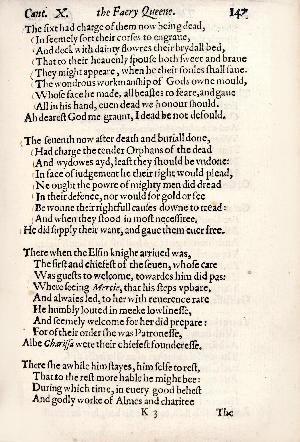 Cant. X. the Faery Queene. 147
The sixt had charge of them now being dead,
In seemely sort their corses to engraue,
And deck with dainty flowres their brydall bed,
That to their heauenly spouse both sweet and braue
They might appeare, when he their soules shall saue.
The wondrous workmanship of Gods owne mould,
Whose face he made, all beastes to feare, and gaue
All in his hand, euen dead we honour should.
Ah dearest God me graunt, I dead be not defould.
The seuenth now after death and buriall done,
Had charge the tender Orphans of the dead
And wydowes ayd, least they should be vndone:
In face of iudgement he their right would plead,
Ne ought the powre of mighty men did dread
In their defence, nor would for gold or fee
Be wonne their rightfull causes downe to tread:
And when they stood in most necessitee,
He did supply their want, and gaue them euer free.
There when the Elfin knight arriued was,
The first and chiefest of the seuen, whose care
Was guests to welcome, towardes him did pas:
Where seeing Mercie, that his steps vpbare,
And alwaies led, to her with reuerence rare
He humbly louted in meeke lowlinesse,
And seemely welcome for her did prepare:
For of their order she was Patronesse,
Albe Charissa were their chiefest founderesse.
There she awhile him stayes, him selfe to rest,
That to the rest more hable he might bee:
During which time, in euery good behest
And godly worke of Almes and charitee
K 3 The